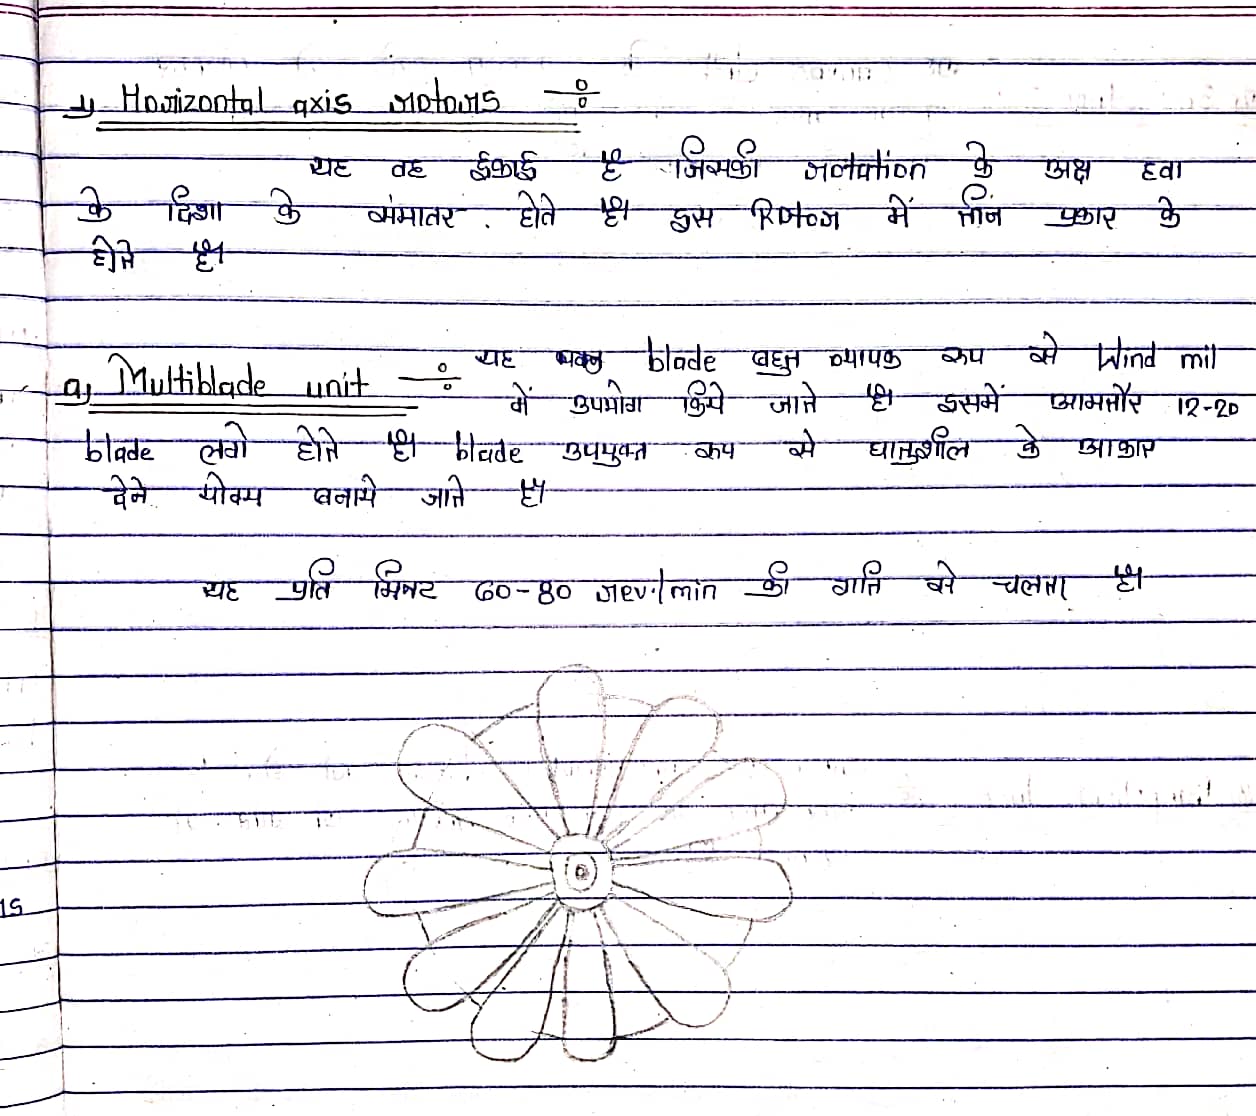 1) Horizontal axis rotors ÷
यह वह ईकाई है जिसकी rotation के अक्ष हवा
के दिशा के समांतर . होते है। इस Rotor में तीन प्रकार के
होते है।
a) Multiblade unit ÷ यह blade बहुत व्यापक रूप से Wind mil
में उपयोग किये जाते है। इसमें आमतौर 12-20
blade लगे होते है। blade उपयुक्त रूप से धातुशील के आकार
देने योग्य बनाये जाते है।
यह प्रति मिनट 60-80 rev./min की गति से चलता है।